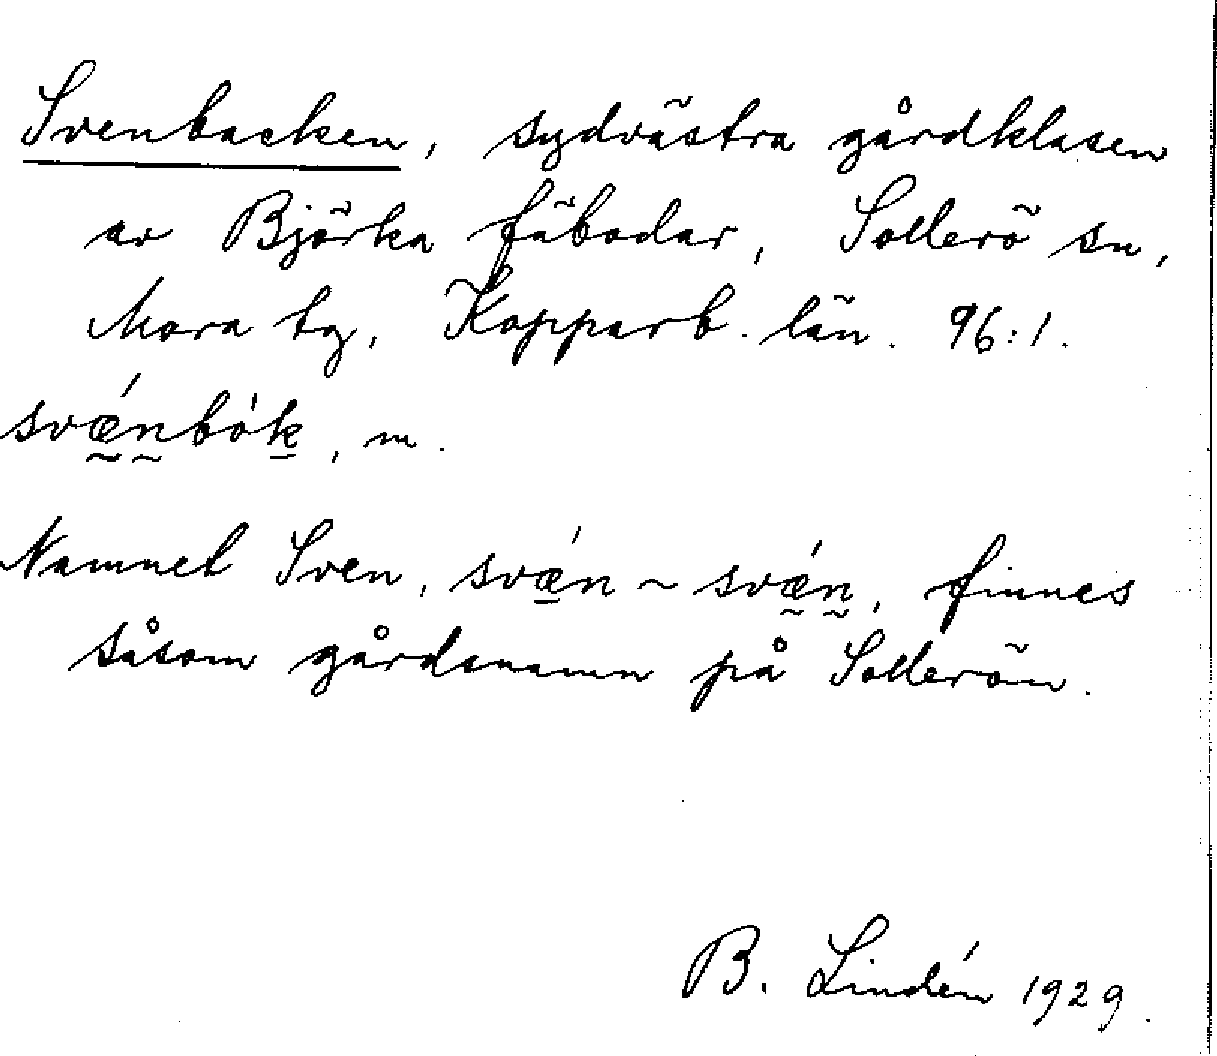 Svenbacken, sydvästra gårdklasen
av Björka fäbodar, Sollerö sn,
Mora tg, Kopparb. län. 96:1.
svǽ̰n̰bòḵ, m.
Namnet Sven, svǽ̱n ~ svǽ̰n̰, finnes
såsom gårdsnamn på Sollerön.
B. Lindén 1929.